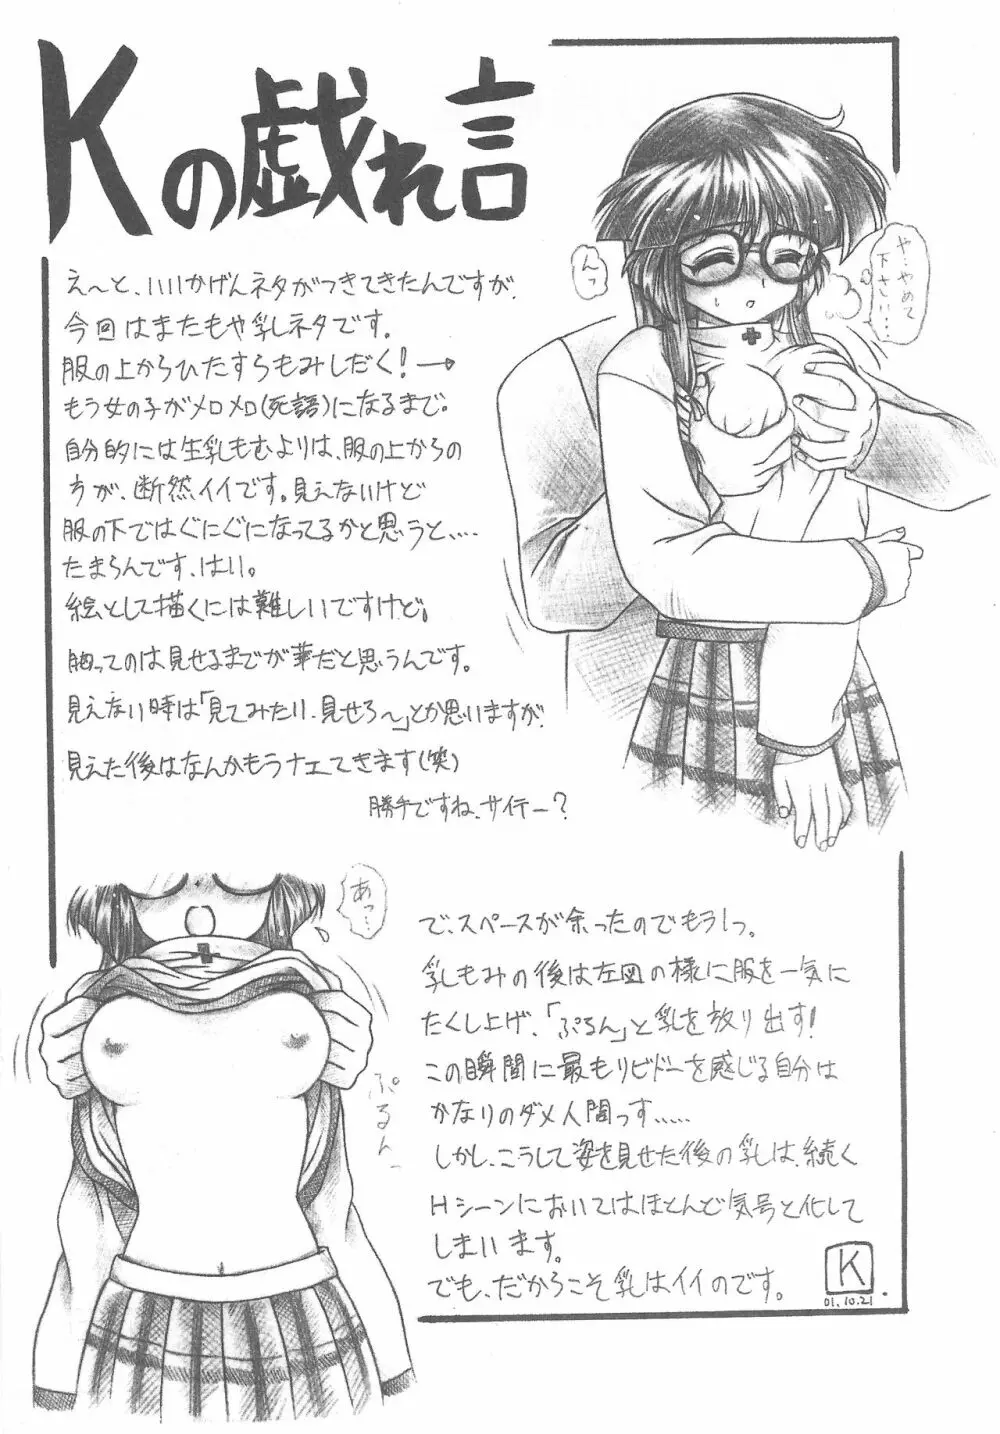 Kの戯れ言
え〜と、いいかげんネタがつきてきたんですが、
今回はまたもや乳しネタです。
服の上からひたすらもみしだく!→
もう女の子がメロメロ(死語)になるまで。
自分的には生乳もむよりは、服の上からの
方が、断然イイです。見えないけど
服の下ではぐにぐになってるかと思うと、….
たまらんです、はい。
絵として描くには難しいですけど。
胸ってのは見せるまでが華だと思うんです。
見えない時は「見てみたい、見せろ〜」とか思いますが、
見えた後はなんかもうナエてきます(笑)
勝手ですね、サイテー?
んっ
や・やめて
下さい…
あっ…
ぷるん
で、スペースが余ったのでもう1つ。
乳もみの後は左図の様に服を一気に
たくし上げ、「ぷるん」と乳を放り出す!
この瞬間に最もリビドーを感じる自分は
かなりのダメ人間っす…..
しかし、こうして姿を見せた後の乳は、続く
Hシーンにおいてはほとんど気号と化して
しまいます。
でも、だからこそ乳はイイのです。
K
01.10.21.